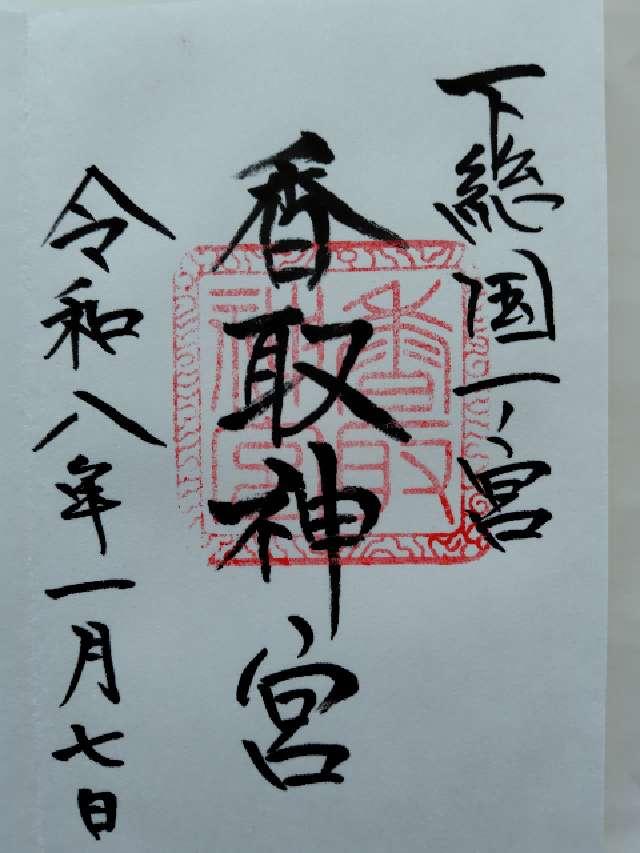 下総国一ノ宮
香取神宮
香取神宮
令和八年一月七日